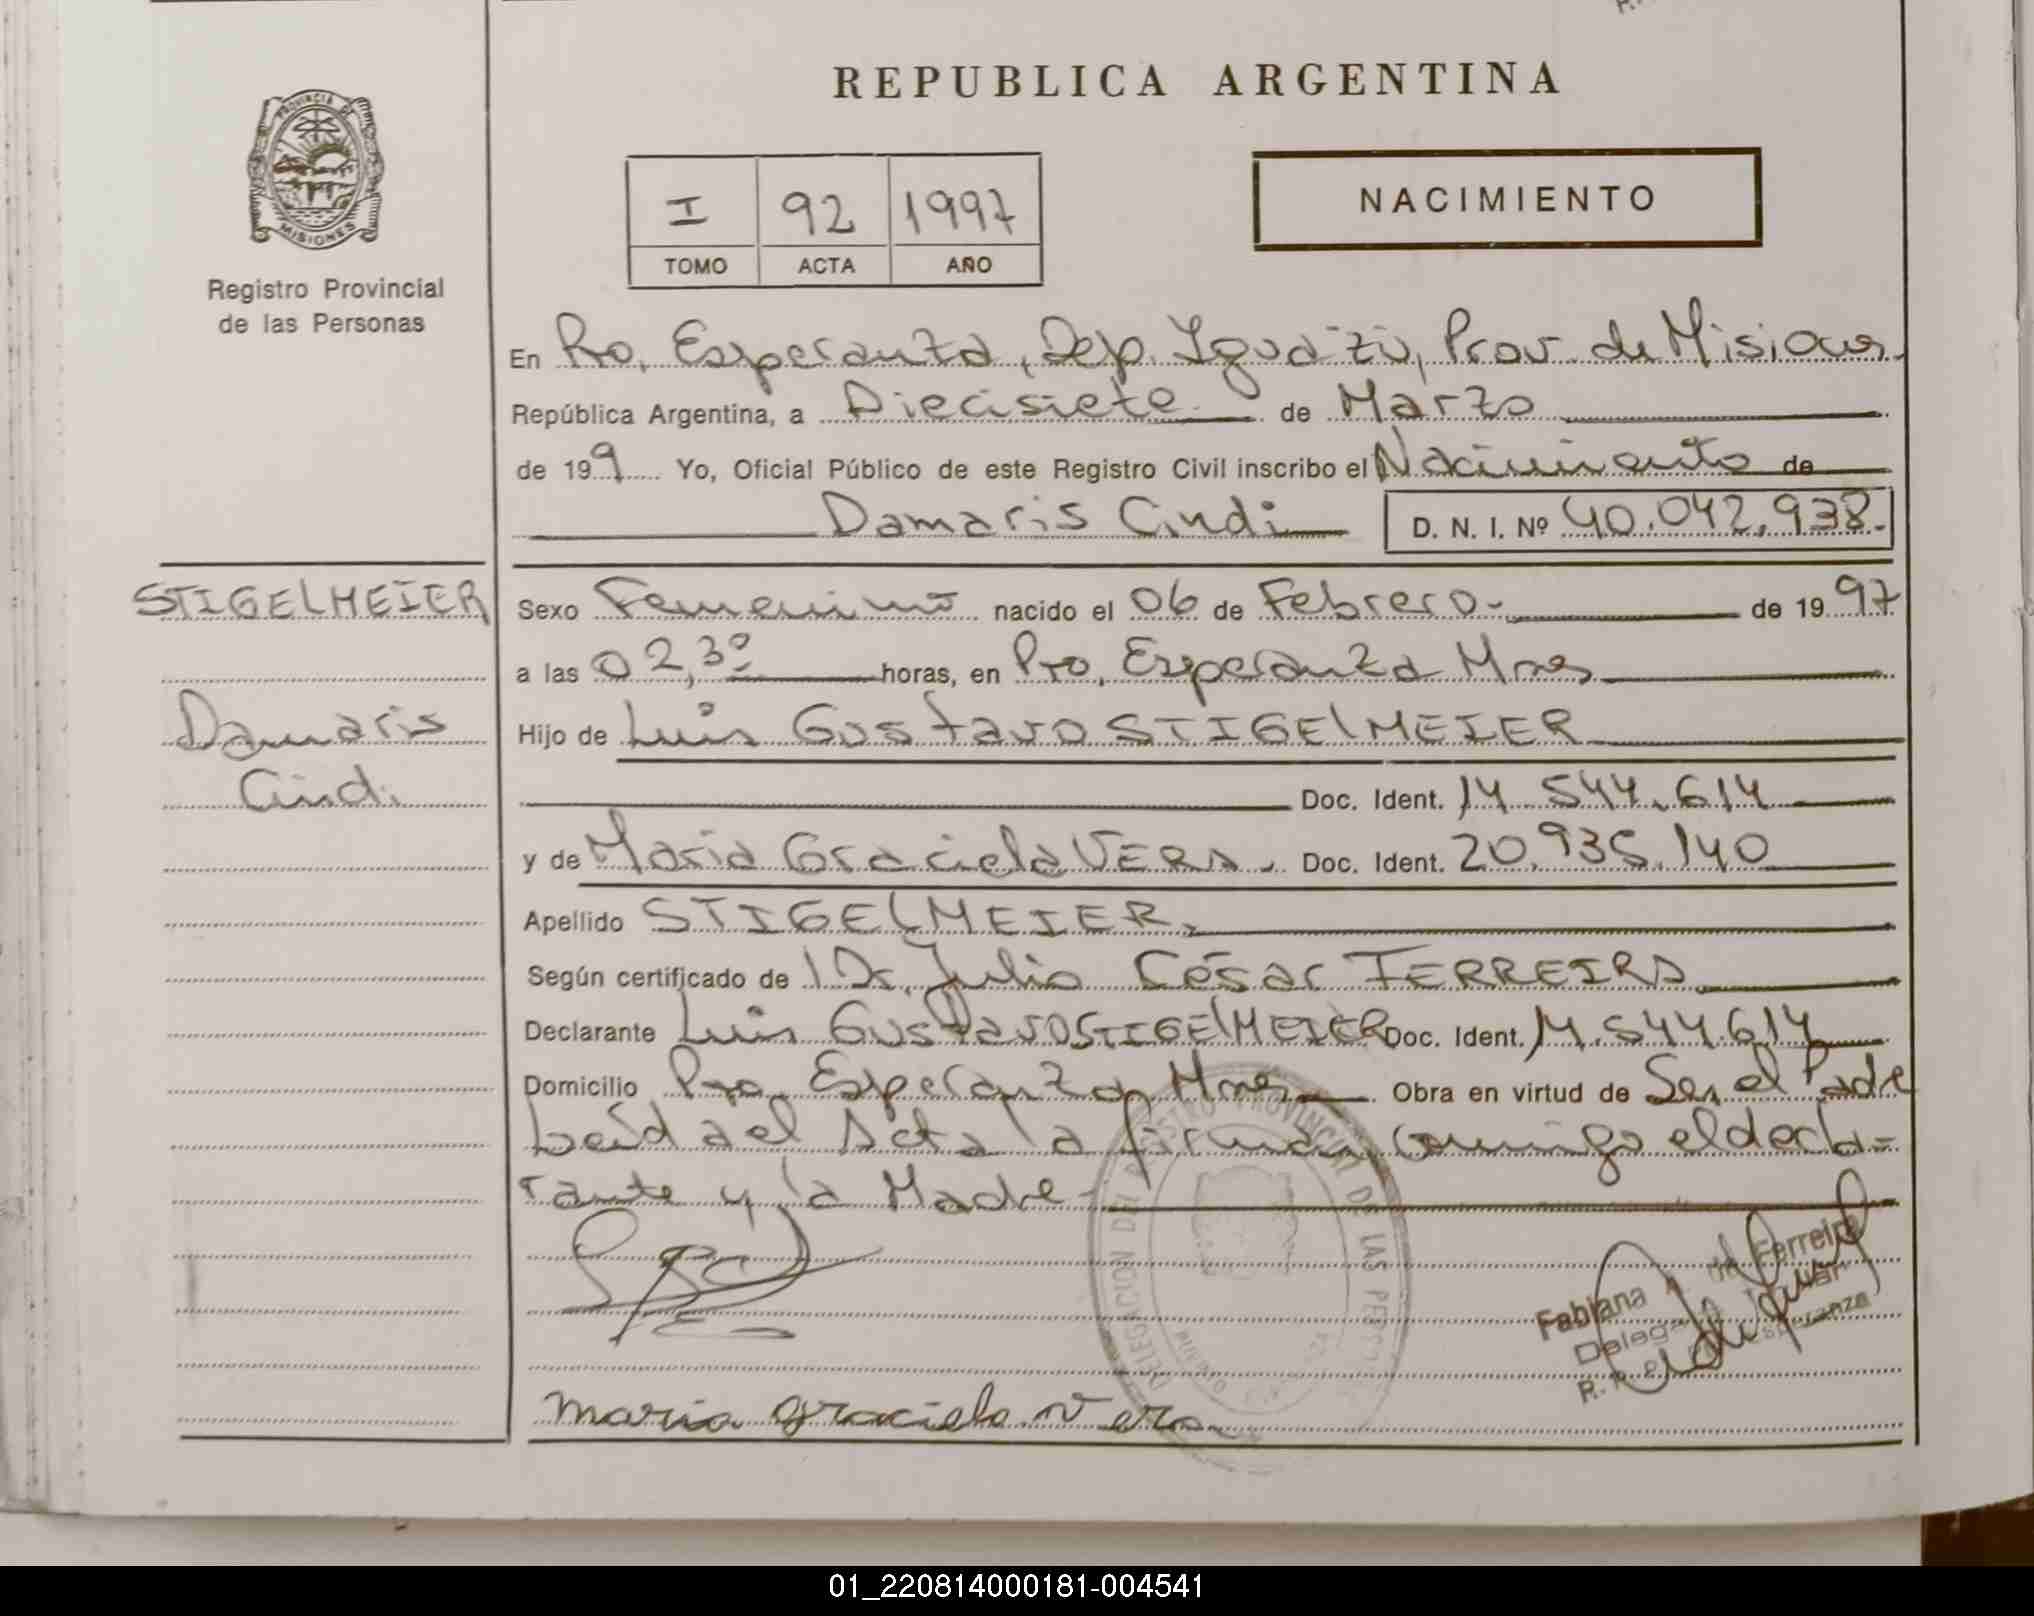 REPUBLICA ARGENTINA
PROVINCIA DE
MISIONES
Registro Provincial
de las Personas
I 92 1997
TOMO ACTA AÑO
NACIMIENTO
En Pto, Esperanza, Dep. Iguazú, Prov. de Misiones.
República Argentina, a Diecisiete de Marzo
de 199 Yo, Oficial Público de este Registro Civil inscribo el Nacimiento de
Damaris Cindi D. N. I. Nº 40.042.938.
STIGELMEIER
Damaris
Cindi
Sexo Femenino nacido el 06 de Febrero.- de 1997
a las 02,30 horas, en Pto, Esperanza Mnes
Hijo de Luis Gustavo STIGELMEIER
Doc. Ident. 14.544.614
y de Maria Graciela VERA. Doc. Ident. 20.935.140
Apellido STIGELMEIER,
Según certificado de l Dr, Julio César FERREIRA
Declarante Luis Gustavo STIGELMEIER Doc. Ident. 14.544.614
Domicilio Pto, Esperanza, Mnes Obra en virtud de Ser el Padre
Leíd a el Acta la firman Conmigo el decla=
rante y la Madre-
DELEGACION DEL REGISTRO PROVINCIAL DE LAS PERSONAS
Fabiana de Ferreira
maria graciela vera
01_220814000181-004541